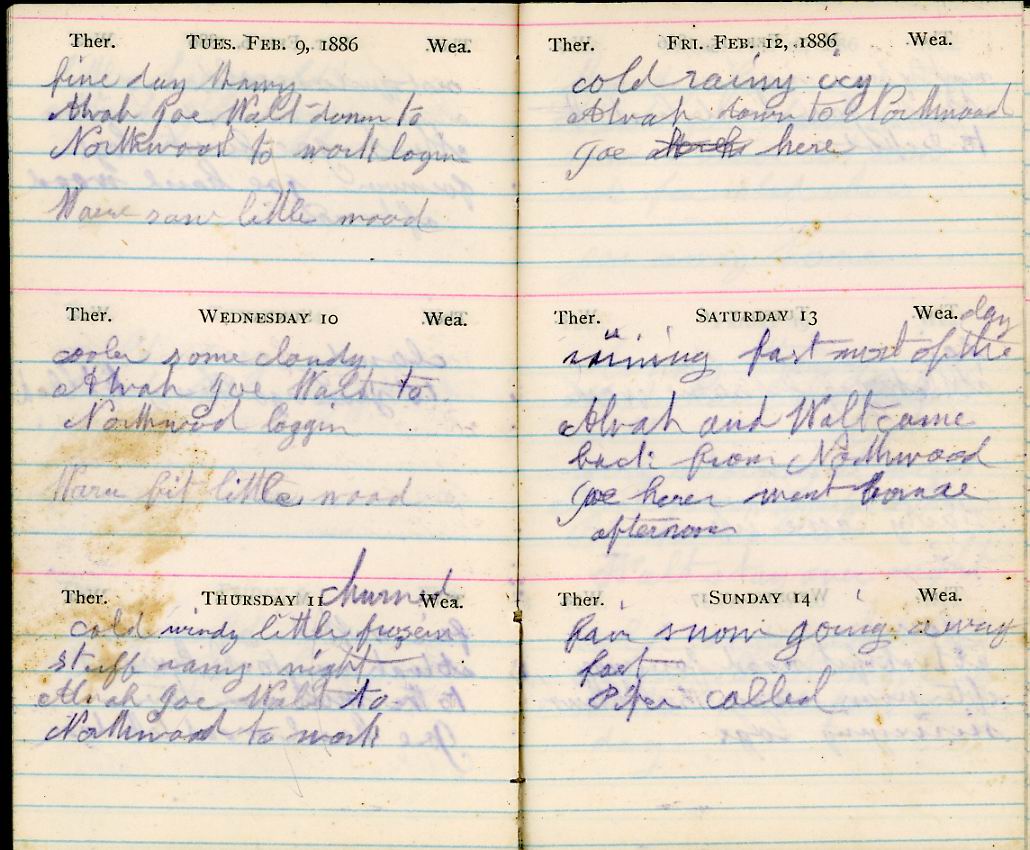 Ther. TUES. FEB. 9, 1886 Wea.
fine day thawy
Alvah Joe Walt down to
Northwood to work login
saw little wood
Ther. WEDNESDAY 10 Wea.
cooler some cloudy
Alvah Joe Walt to
Northwood loggin
fit little wood
Ther. THURSDAY 11 Wea.
churned
cold windy little frozen
stuff rainy night
Alvah Joe Walt to
Northwood to work
Ther. FRI. FEB. 12, 1886 Wea.
cold rainy icy
Alvah down to Northwood
Joe here
Ther. SATURDAY 13 Wea.
day
raining fast most of the
Alvah and Walt came
back from Northwood
Joe here went home
afternoon
Ther. SUNDAY 14 Wea.
fair snow going away
fast
called